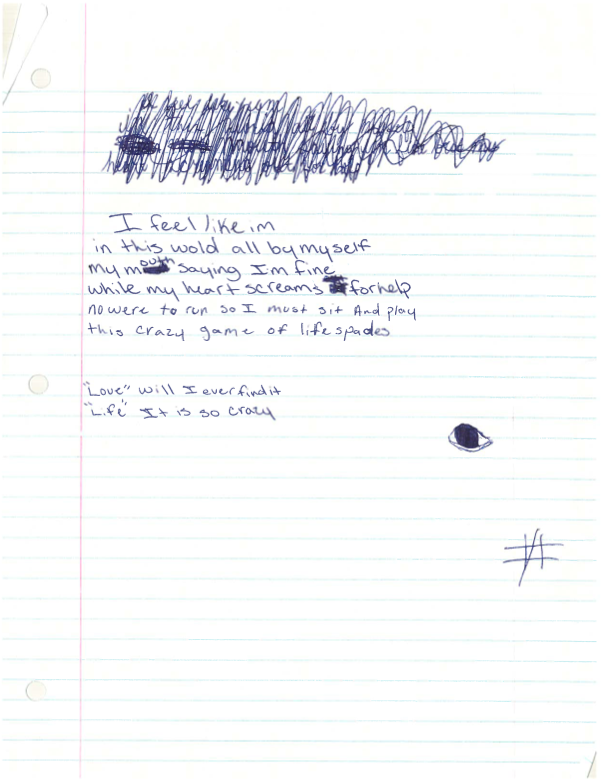 I feel like im
in this wold all by myself
my mouth saying Im fine
while my heart screams for help
no were to run so I must sit And play
this crazy game of life spades
"Love" will I ever find it
"Life" It is so crazy
#